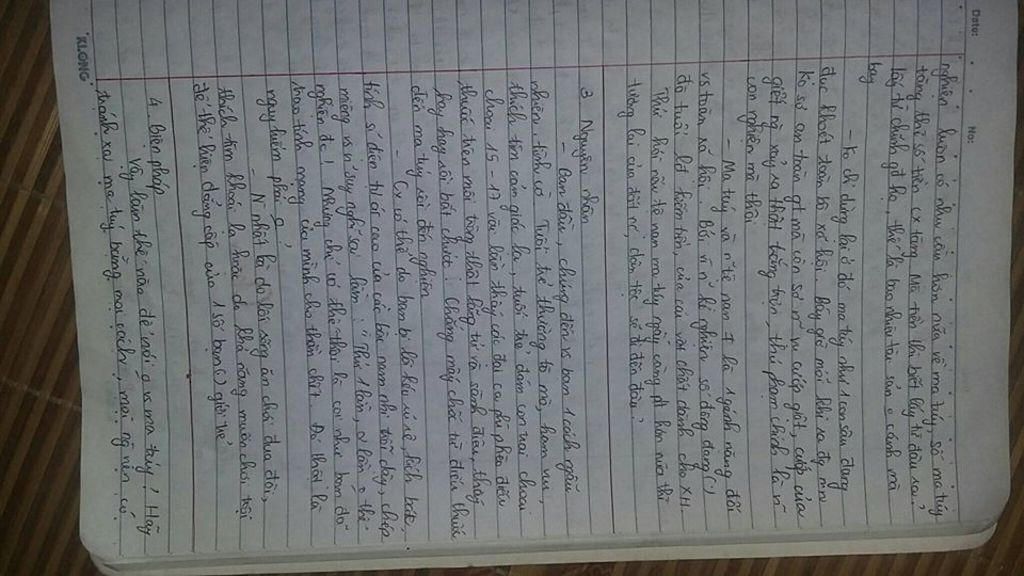 Date: No:
nghiện luôn có nhu cầu hơn nữa về ma túy, số ma túy
tăng thì số tiền cx tăng. Mà tiền thì biết lấy từ đâu ra?
lấy từ chính gđ họ, thế là bao nhiêu tài sản o cánh mà
bay
- Ko chỉ dừng lại ở đó ma túy như 1 con sâu đang
đục khoét toàn bộ xã hội. Bây giờ mỗi khi ra đg nhìn
ko sợ an toàn gt mà còn sợ n~ vụ cướp giật, cướp của
giết ng xảy ra thật trắng trợn, thủ phạm chính là n~
con nghiện ma túy thôi
- Ma túy và n~ tệ nạn # là 1 gánh nặng đối
vs toàn xã hội. Bởi vì n~ kẻ nghiện số đông đang ( )
độ tuổi lđ kiếm tiền, của cải vật chất dành cho XH
Thử hỏi nếu tệ nạn ma túy ngày càng pt hơn nữa thì
tương lai của đất nc, dân tộc sẽ đi đến đâu?
3 Nguyên nhân
- Ban đầu, chúng đến vs bạn 1 cách ngẫu
nhiên, tình cờ. Tuổi trẻ thường tò mò, ham vui,
thích tìm cảm giác lạ, tuổi trẻ, đám con trai choai
choai 15 - 17 vài lần thấy các đại ca phì phèo điếu
thuốc trên môi trông thật lãng tử và sành điệu, thấy
hay hay rồi bắt chước. Chẳng mấy chốc từ điếu thuốc
đến ma túy rồi đến nghiện
- Cx có thể do bạn bè lôi kéo rủ rê, kích bác
tính sĩ diện tự ái cao của các bậc nam nhi trỗi dậy, chép
miệng vs n~ suy nghĩ sai lầm: "Thử 1 lần, 2 lần o thể
nghiện đc! Nhưng chỉ có thế thôi là coi như bạn đó
trao tính mạng của mình cho thần chết. Đó thật là
nguy hiểm phải o?
- N nhất là do lối sống ăn chơi đua đòi,
thích tiền khoái lạc hoặc do khả năng muốn chơi trội
để thể hiện đẳng cấp của 1 số bạn ( ) giới trẻ
4. biện pháp
Vậy làm thế nào để nói o vs ma túy? Hãy
tránh xa ma túy bằng mọi cách, mọi ng nên có
KLONG